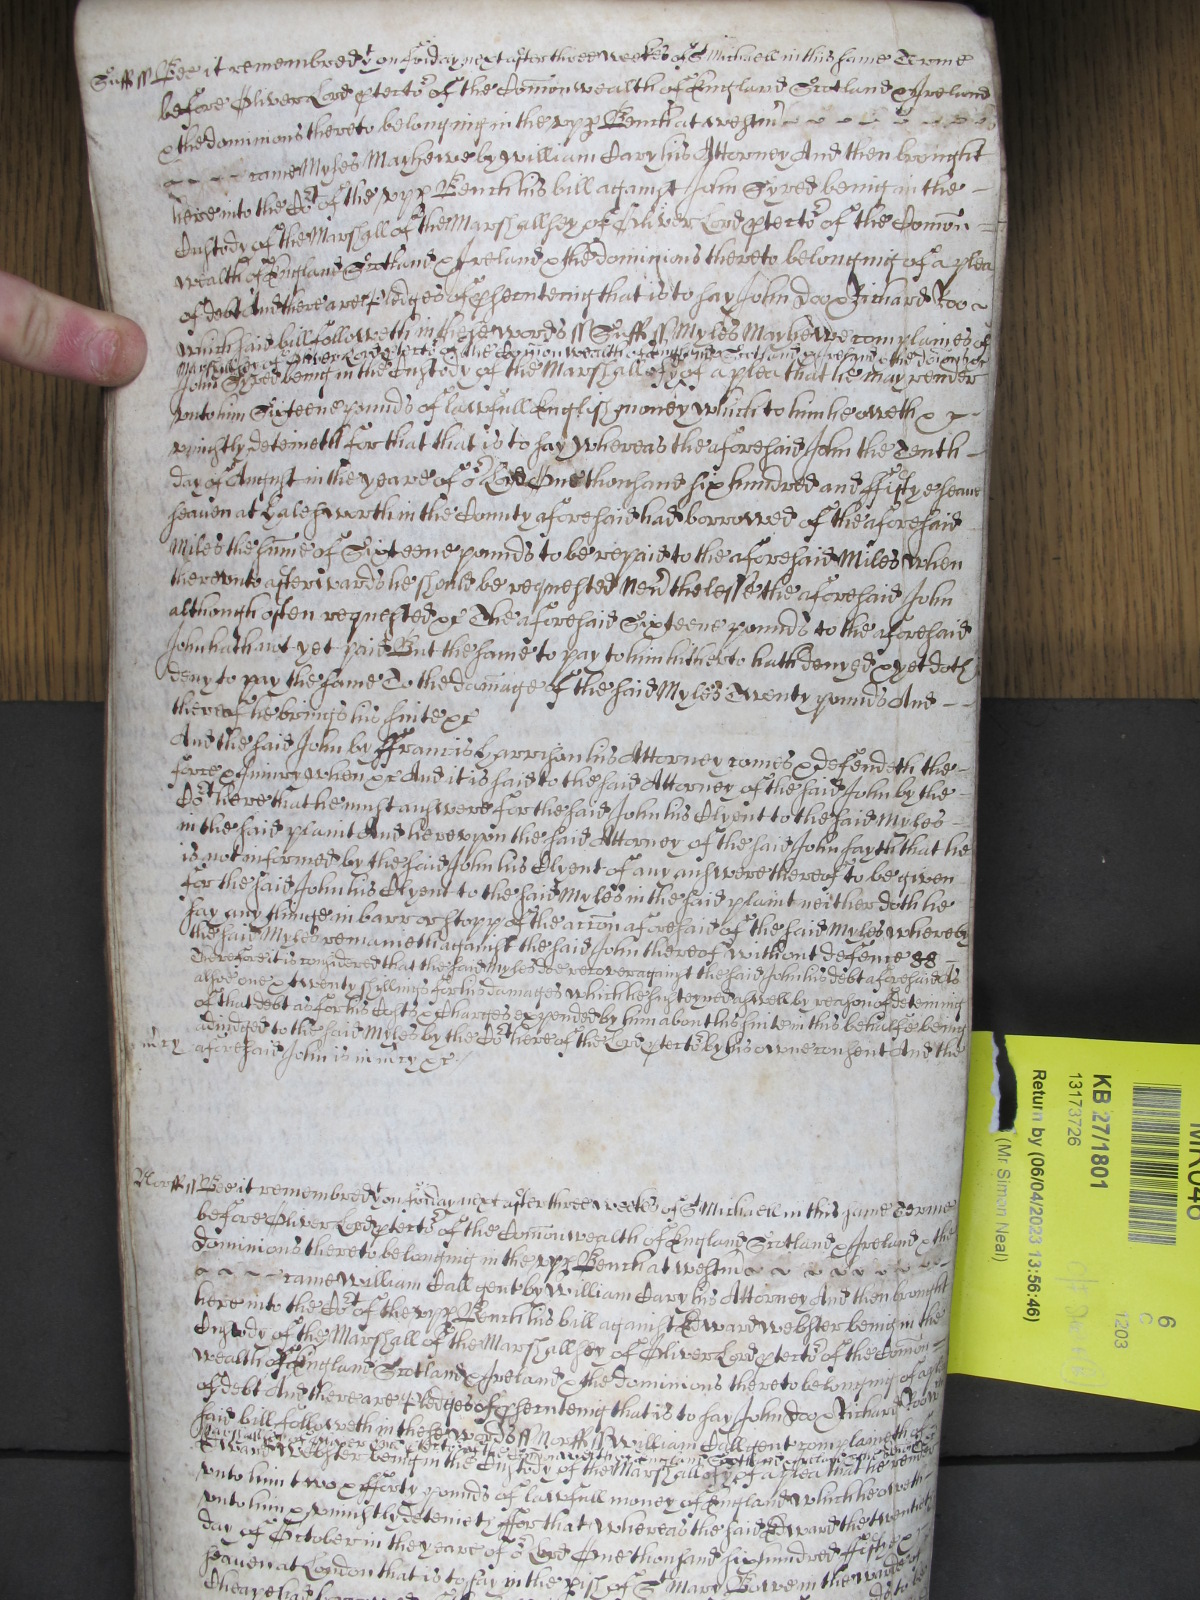 Suff ss Bee it remembred yt on Friday next after three weekes of St Michaell in this same Terme
before Oliver Lord ptector of the Comonwealth of England Scotland & Ireland
& the dominions thereto belonging in the upp Bench at Westmr
came Myles Mayhewe by William Cary his Attorney And then brought
here into the Cort of the upp Bench his bill against John Syred being in the
Custody of the Marshall of the Marshallsey of Oliver Lord ptector of the Comon
wealth of England Scotland & Ireland & the dominions thereto belonging of a plea
of debt And there are pledges of psecuteing that is to say John Doo & Richard Roo
which said bill followeth in these words ss Suff ss Myles Mayhewe complaines of
Marshallsey of Oliver Lord ptector of the Comonwealth of England Scotland & Ireland & the
John Syred being in the Custody of the Marshall of of a plea that he may render
unto him Sixteene pounds of lawfull English money which to him he oweth &
uniustly deteineth for that that is to say Whereas the aforesaid John the Tenth
day of August in the yeare of or Lord One thousand six hundred and Fifty & seaven
seaven at Halesworth in the County aforesaid had borrowed of the aforesaid
Miles the sume of Sixteene pounds to be repaid to the aforesaid Miles when
thereunto afterwards he should be requested Nevertheless the aforesaid John
although often requested &c The aforesaid Sixteene pounds to the aforesaid
John hath not yet paid But the same to pay to him hitherto hath denyed & yet doth
deny to pay the same To the damage of the said Myles Twenty pounds And
thereof he brings his suite &c
And the said John by Francis Harrison his Attorney comes & defendeth the
force & iniury when &c And it is said to the said Attorney of the said John by the
Cort here that he must answere for the said John his Clyent to the said Myles
in the said plaint And hereupon the said Attorney of the said John sayth that he
is not informed by the said John his Clyent of any answere thereof to be given
for the said John his Clyent to the said Myles in the said plaint neither doth he
say any thinge in barr or stopp of the accon aforesaid of the said Myles whereby
the said Myles remaineth against the said John thereof without defence
Therefore it is considered that the said Myles doe recover against the said John his debt aforesaid As
alsoe one & twenty shillings for his damages which he susteyned aswell by reason of deteining
of that debt as for his Costs & Charges expended by him about his suite in this behalfe being
adiudged to the said Myles by the Cort here of the Lord ptector by his owne consent And the
mcy
aforesaid John is in mcy &c
Norff ss Bee it remembred yt on Friday next after three weekes of St Michaell in this same Terme
before Oliver Lord ptector of the Comonwealth of England Scotland & Ireland & the
dominions thereto belonging in the upp Bench at Westmr
came William Call gent by William Cary his Attorney And then brought
here into the Cort of the upp Bench his bill against Edward Webster being in the
Custody of the Marshall of the Marshallsey of Oliver Lord ptector of the Comon
wealth of England Scotland & Ireland & the dominions thereto belonging of a plea
of debt And there are pledges of psecuteing that is to say John Doo & Richard Roo
said bill followeth in these words ss Norff ss William Call gent complaineth of
Edward Webster being in the Custody of the Marshall of of a plea that he render
unto him two & fforty pounds of lawfull money of England which he oweth
unto him & uniustly deteineth ffor that whereas the said Edward the twentieth
day of October in the yeare of or Lord One thousand six hundred ffifty &
seaven at London that is to say in the pish of St Mary Bowe in the warde of
Cheape had
KB 27/1801
13173726
Return by (06/04/2023 13:56:46)
(Mr Simon Neal)
6
C
1203